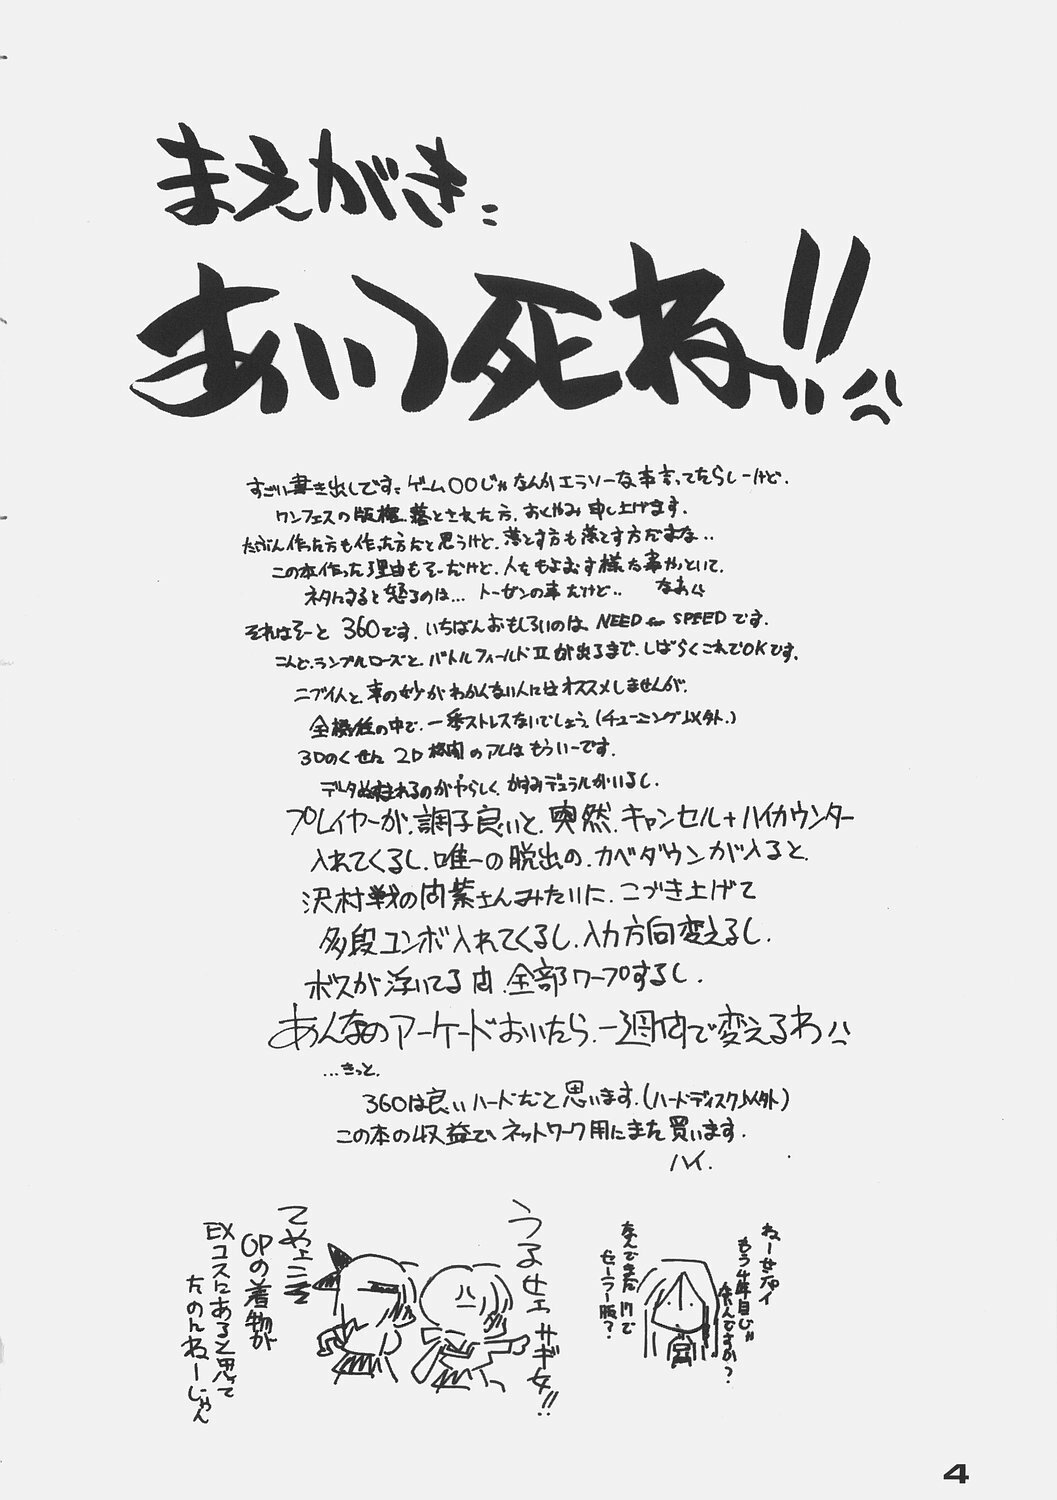 まえがき、
あいつ死ね!!
すごい書き出しです、ゲーム〇〇じゃなんかエラソーな事言ってたらしーけど、
ワンフェスの版権、落とされた方、おくやみ申し上げます。
たぶん作った方も作った方だと思うけど、落とす方も落とす方だよな‥
この本作った理由もそーだけど、人をもよおす様な事やっといて、
ネタにすると怒るのは… トーゼンの事だけど‥ なあ
それはそーと 360です。いちばんおもしろいのは、NEED for SPEEDです。
こんど、ランブルローズと、バトルフィールドⅡが出るまで、しばらくこれでOKです。
ニブイ人と、車の妙がわかんない人にはオススメしませんが、
全機種の中で、一番ストレスないでしょう。(チューニング以外。)
3Dのくせに 2D格闘のアレはもういーです。
かすみデュラルがいるし、
プレイヤーが、調子良いと、突然、キャンセル+ハイカウンター
入れてくるし、唯一の脱出の、カベダウンが入ると、
沢村戦の間柴さんみたいに、こづき上げて
多段コンボ入れてくるし、入力方向変えるし、
ボスが浮いてる間、全部ワープするし、
あんなのアーケードおいたら、一週間で変えるわ
…きっと、
360は良いハードだと思います。(ハードディスク以外)
この本の収益で、ネットワーク用にまた買います。
ハイ、
ねーせんぱイ
もう4年目じゃ
ないんですか?
なんでまだ17で
セーラー服?
うるせェサギ女!!
てやェ
OPの着物が
EXコスにあると思って
たのんねーじゃん
4